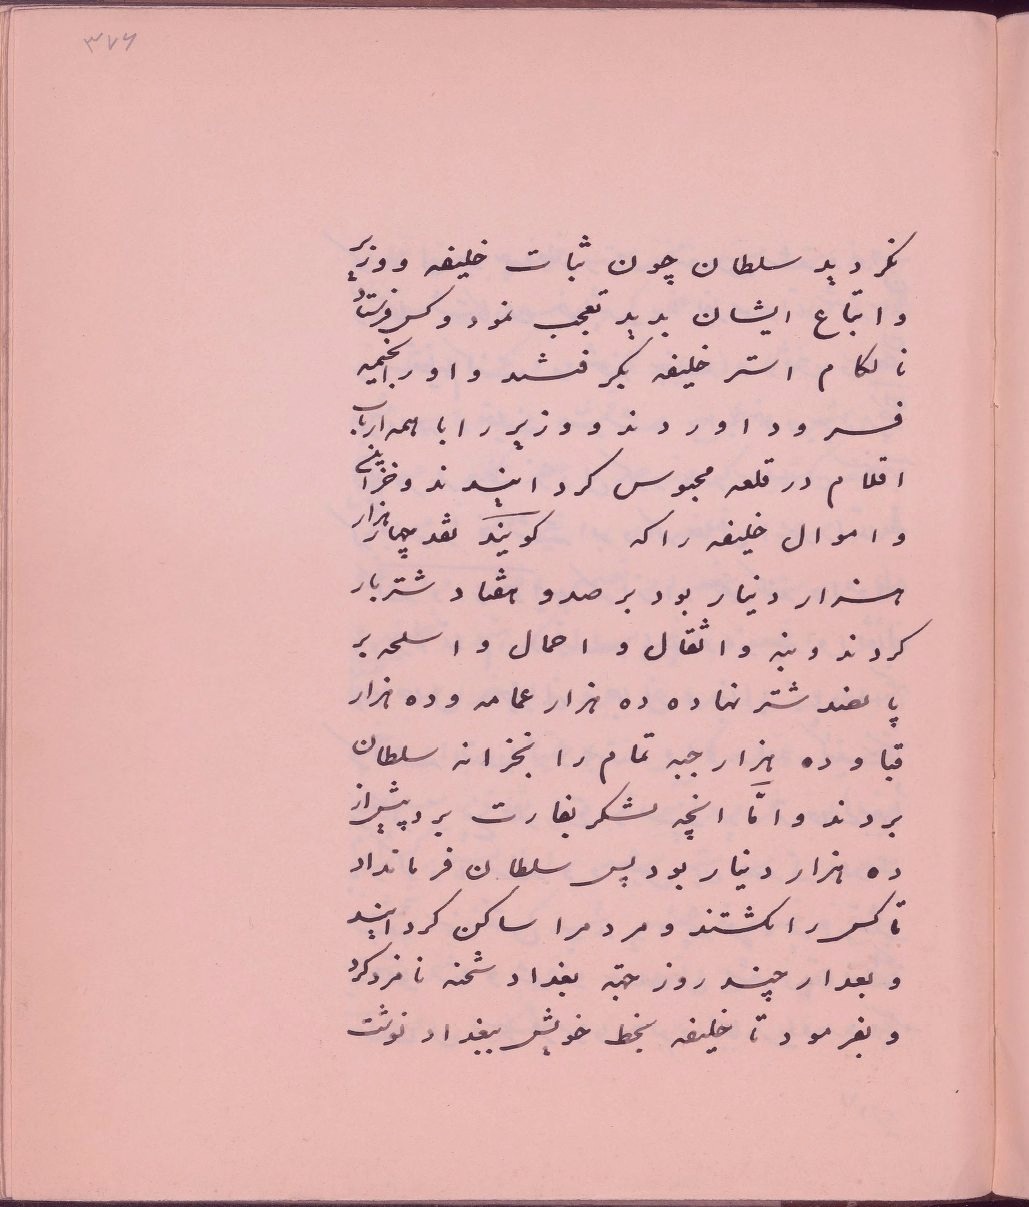 ۳۷۶
نکردید سلطان چون ثبات خلیفه و وزیر
و اتباع ایشان بدید تعجب نمود و کس فرستاد
تا لکام استر خلیفه بکرفتند و او را بخیمه
فرود اوردند و وزیر را با همه ارباب
اقلام در قلعه محبوس کردانیدند و خزاین
و اموال خلیفه را که کویند نقد چهار هزار
هزار دینار بود بر صد و هفتاد شتر بار
کردند و بنه و اثقال و احمال و اسلحه بر
پانصد شتر نهاده ده هزار عمامه و ده هزار
قبا و ده هزار جبه تمام را بخزانه سلطان
بردند و امّا انچه لشکر بغارت برد پیش از
ده هزار دینار بود پس سلطان فرمانداد
تا کس را نکشتند و مردمرا ساکن کردانید
و بعد از چند روز جهة بغداد شحنه نامزد کرد
و بفرمود تا خلیفه بخط خویش ببغداد نوشت